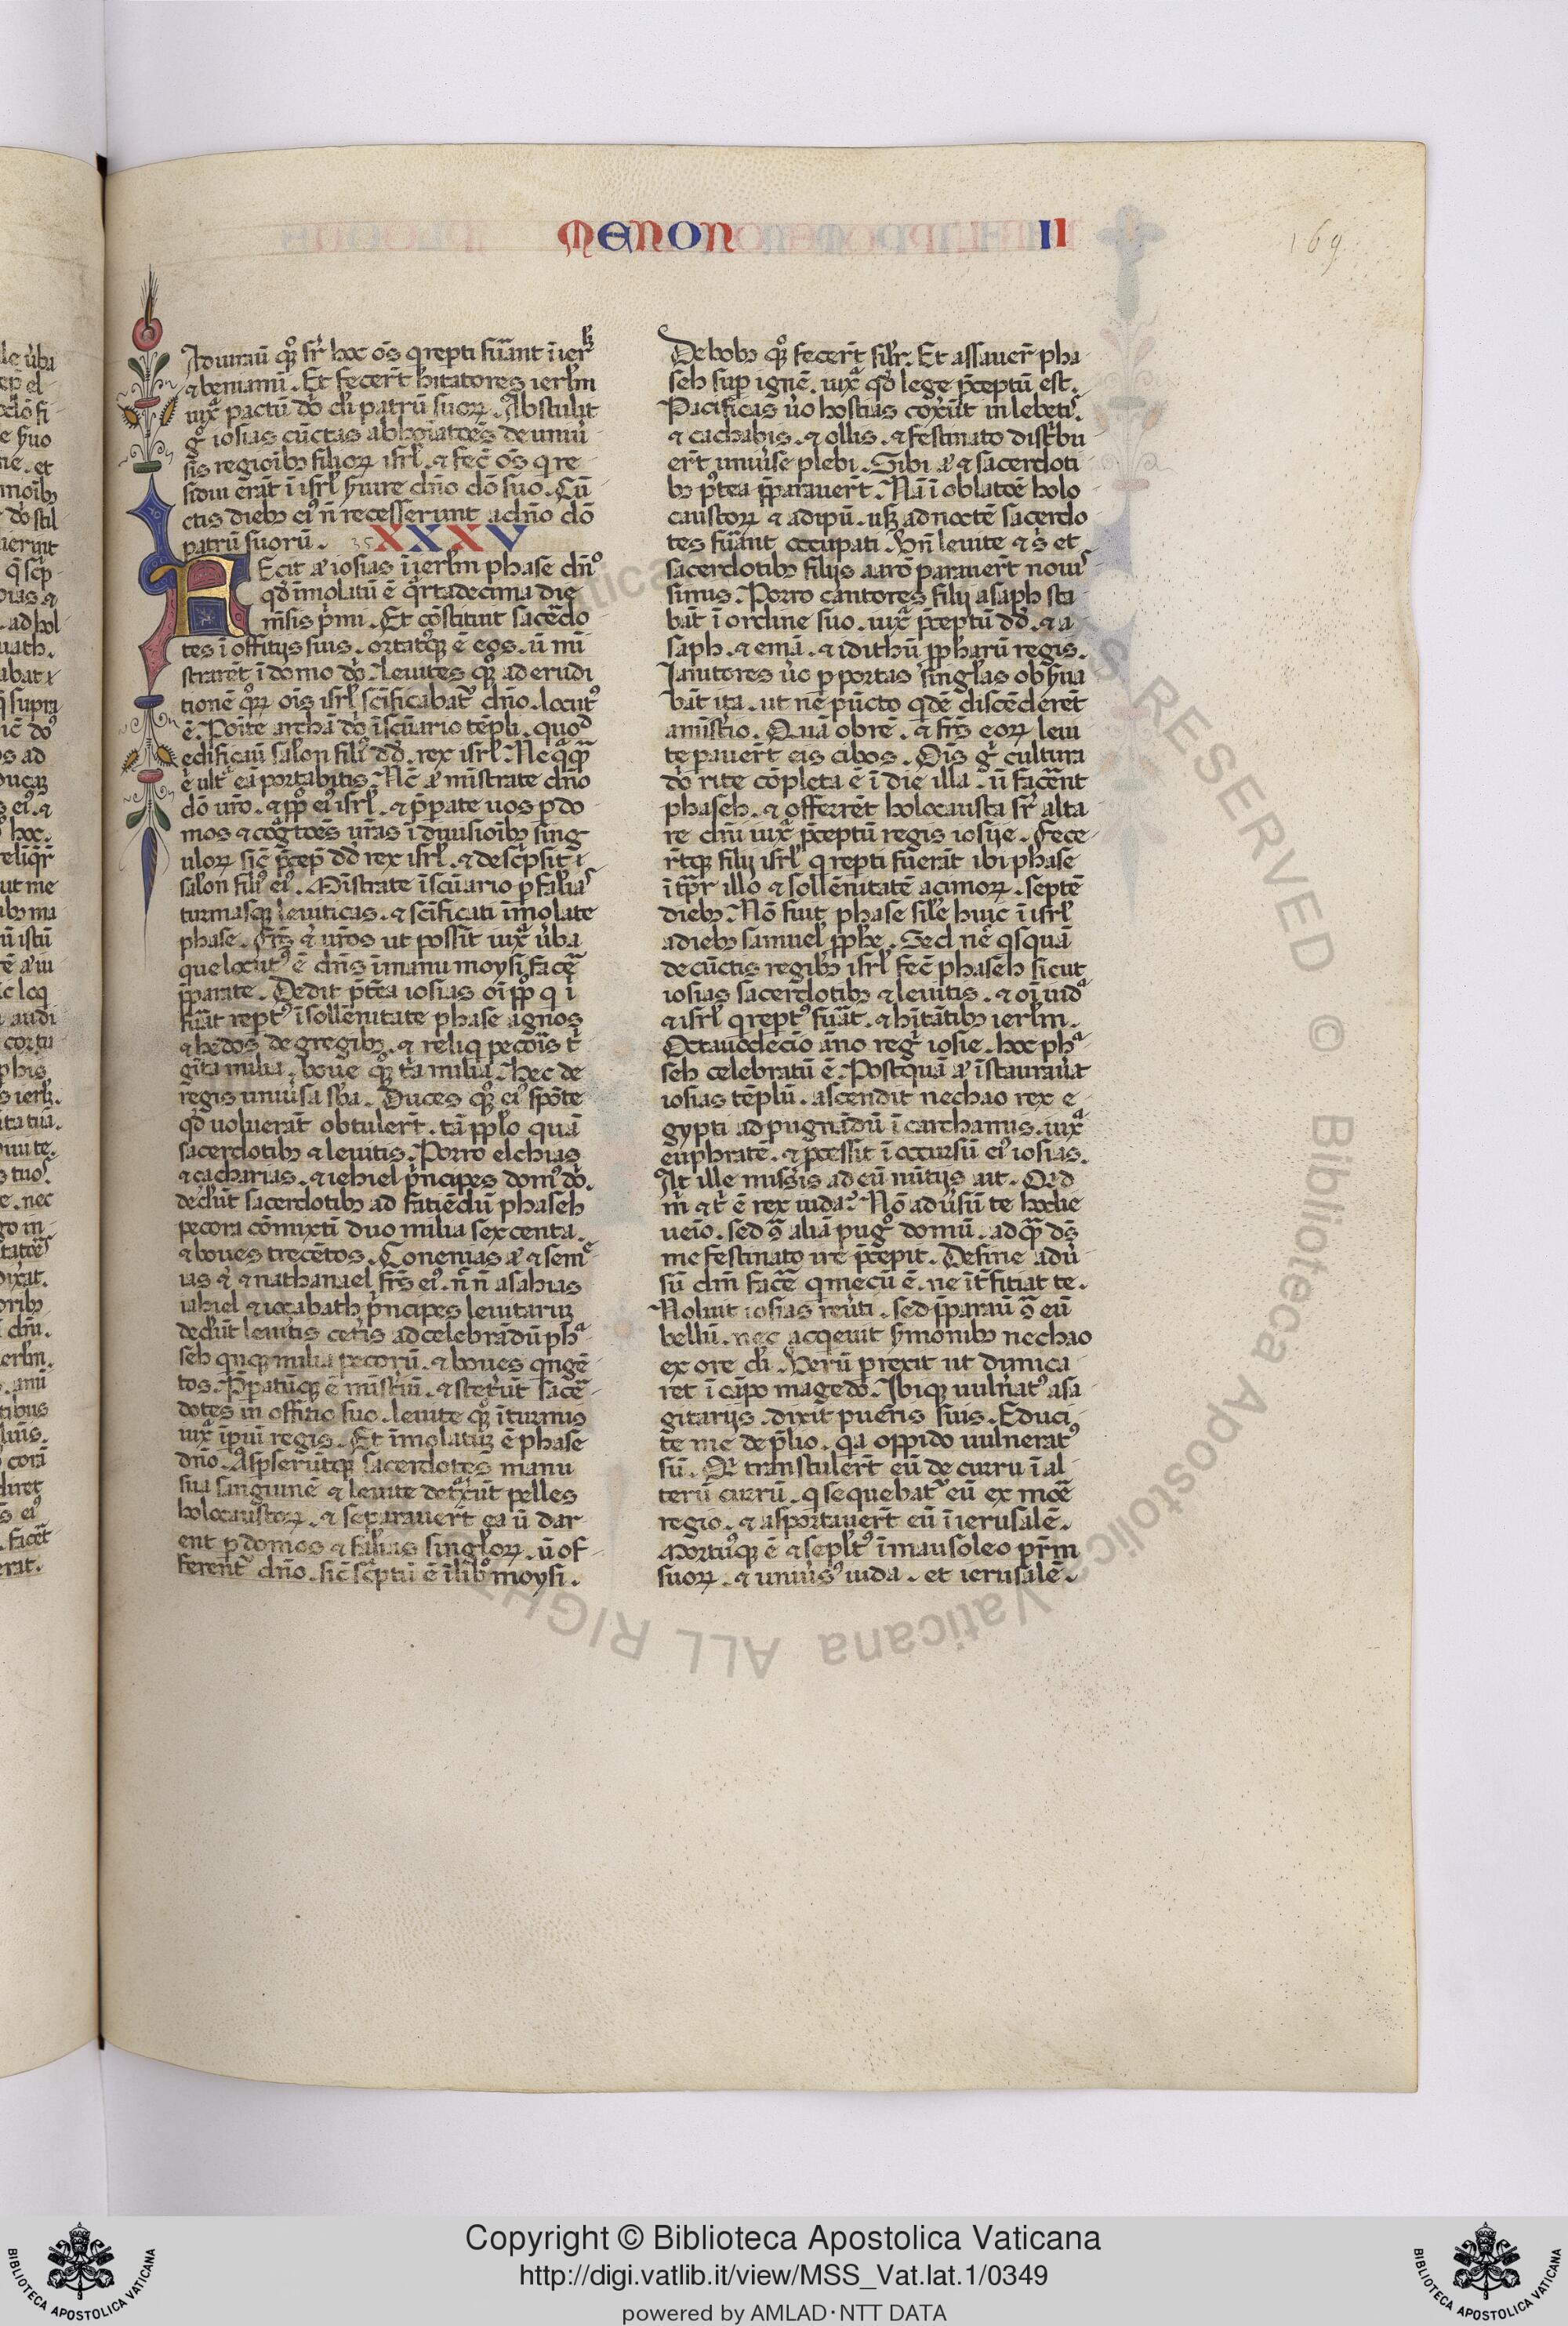 MENON II
169
Adiurauit q̄ȝ sr̄ hoc oēs q̄ reperti fuāt ī ierlꝫ
⁊ beniamī. Et fecer̄t hītatores ierlm̄
iuxͣ pactū dn̄i di patrū suoꝝ. Abstulit
gͦ iosias cūctas abhoīatōes de uniuͥ
sis regioībꝫ filioꝝ isrl̄. ⁊ fec̄ oēs q̄ re
sidui erāt ī isrl̄ s̄uire dn̄o dō suo. Cū
ctis diebꝫ eiꝰ n̄ recesserunt a dn̄o dō
patrū suorū. 35 XXXV
FEcit aͣ iosias ī ierlm̄ phase dn̄oͦ
qd̄ īmolatū ē qͣrtadecima die
m̄sis pͥmi. Et cōstituit sac̄edo
tes ī offitijs suis. ortatꝰqꝫ ē eos. ū mī
strarēt ī domo dn̄i. Leuites qͦȝ ad erudi
tionē qͦꝝ oīs isrl̄ sc̄ificabatʳ dn̄o. locutꝰ
ē. Poīte archā dn̄i ī sc̄uario tēpli. quod
edificauī salon filiꝰ dd̄. rex isrl̄. Neqͣqͣ
ē ultͣ eā portabitis. Nc̄ aͣ mīstrate dn̄o
dō ur̄o. ⁊ pp̄lo eiꝰ isrl̄. ⁊ p̄pate uos p do
mos ⁊ cogͣtōes ur̄as ī diuisioībꝫ sing
uloꝝ sic̄ p̄cep̄ dd̄ rex isrl̄. ⁊ descͥpsit
salon filiꝰ eiꝰ. Mīstrate ī sc̄uario p falīas
turmasqꝫ leuiticas. ⁊ sc̄ificati īmolate
phase. Fr̄s ⁊ ur̄os ut possīt iuxͣ ūba
que locutꝰ ē dn̄s ī manu moysi facͣe
p̄parate. Dedit p̄tea iosias oī pp̄lo q̄ ī
fuāt reptꝰ ī sollēnitate phase agnos
⁊ hedos de gregibꝫ. ⁊ reliqͥ pecoīs tͥ
gīta milia. boue qͦȝ tͥa milia. hec de
rēgis uniūsa sb̄a. Duces qͦȝ eiꝰ spōte
qd̄ uoluerāt obtulert̄. tā pp̄lo quā
sacerdotibꝫ ⁊ leuitis. Porro elchias
⁊ cacharias. ⁊ iehiel pͥncipes domꝰ dn̄i.
deder̄ut sacerdotibꝫ ad fatiēdū phaseh
pecora cōmixtī duo milia sexcenta.
⁊ boues trecētos. Conenias aͣ ⁊ semeͤ
ias ⁊ ⁊ nathanael fr̄s eiꝰ. n̄ n̄ asabias
iahiel ⁊ iozabath pͥncipes leuitarūȝ
deder̄ut leuitis cet̄is ad celebrādū phͣ
seh qn̄qꝫ milia pecorū. ⁊ boues qngē
tos. P̄patūqꝫ ē mīstͥiū. ⁊ stet̄ūt sac̄e
dotes in offitio suo. leuite qͦȝ ī turmis
iuxͣ īpiū regis. Et īmolatūȝ ē phase
dn̄o. Asp̄serūtqꝫ sacerdotes manu
sua sanguinē ⁊ leuite detͣx̄ūt pelles
holocaustoꝝ. ⁊ separauer̄t ea ū dar
ent p domos ⁊ falīas singl̄oꝝ. ū of
ferent̄ dn̄o. sic̄ scͥptū ē ī libͦ moysi.
De bobꝫ qͦȝ fecer̄t sil̄r. Et assauer̄ pha
seh sup ignē. iuxͣ qd̄ lege p̄ceptū est.
Pacificas ūo hostias coxer̄ūt in lebetiˢ.
⁊ cachabis. ⁊ ollis. ⁊ festinato distͥbu
er̄t uniūse plebi. Sibi aͣ ⁊ sacerdoti
bꝫ p̄tea p̄parauer̄t. Nā ī oblatōe holo
caustoꝝ ⁊ adipū. usqꝫ ad noctē sacerdo
tes fuānt occupati. Vn̄ leuite ⁊ s̄ et
sacerdotibꝫ filijs aarō parauer̄t nouiˢ
simus. Porro cantores filij asaph sta
bāt ī ordine suo. iuxͣ p̄ceptū dd̄. ⁊ a
saph. ⁊ emā. ⁊ idithū pp̄harū regis.
Ianitores ūo p portas singl̄as obs̄ua
bāt ita. ut ne pūcto qdē discēderēt
a mīstͥio. Quā obrē. ⁊ fr̄s eoꝝ leui
te pauer̄t eis cibos. Oīs gͦ cultura
dn̄i rite cōpleta ē ī die illa. ū facͣent
phaseh. ⁊ offerrēt holocausta sr̄ alta
re dn̄i iuxͣ p̄ceptū regis iosije. Fece
r̄tqꝫ filij isrl̄ q̄ repti fuerāt ibi phase
ī tp̄r illo ⁊ sollēnitatē acimoꝝ. septē
diebꝫ. Nō fuit phase sil̄e huic ī isrl̄
a diebꝫ samuel pp̄he. Sed nec̄ qsquā
de cūctis regibꝫ isrl̄ fec̄ phaseh sicut
iosias sacerdotibꝫ ⁊ leuitis. ⁊ oī iudͣ
⁊ isrl̄ q̄ reptꝰ fuāt. ⁊ hītātibꝫ ierlm̄.
Octauodecīo āno reḡ iosie. hoc phͣ
seh celebratū ē. Postquā aͣ īstaurauāt
iosias tēplū. ascendit nechao rex e
gypti ad pugnādū ī carchamus. iuxͣ
euphratē. ⁊ p̄cessit ī occursū eiꝰ iosias.
At ille missis ad eū nūtijs ait. Qd̄
m̄ ⁊ tͥ ē rex iuda? Nō ad ūsū te hodie
ueīo. sed 9ͣ aliā pugͦ domū. ad qͣ ds̄
me festinato ire p̄cepit. Desine adū
sū dm̄ facͣe q mecū ē. ne īt̄fitiat te.
Noluit iosias reūti. sed p̄parauī 9ͣ eū
bellū. nec acqeuit s̄monibꝫ nechao
ex ore di. Verū prexit ut dimica
ret ī cāpo magedō. Ibiqꝫ uuln̄atꝰ a sa
gitarijs. dixit pueris suis. Educi
te me de p̄lio. qa oppido uulneratꝰ
sū. Qi transtulert̄ eū de curru ī al
terū currū. q̄ sequebatʳ eū ex mor̄e
regio. ⁊ asportauer̄t eū ī ierusalē.
Mortuꝰqꝫ ē ⁊ sepl̄tꝰ ī mausoleo pr̄m
suoꝝ. ⁊ uniūsꝰ iuda. et ierusalē.
Copyright © Biblioteca Apostolica Vaticana
http://digi.vatlib.it/view/MSS_Vat.lat.1/0349
powered by AMLAD·NTT DATA
BIBLIOTECA APOSTOLICA VATICANA
BIBLIOTECA APOSTOLICA VATICANA